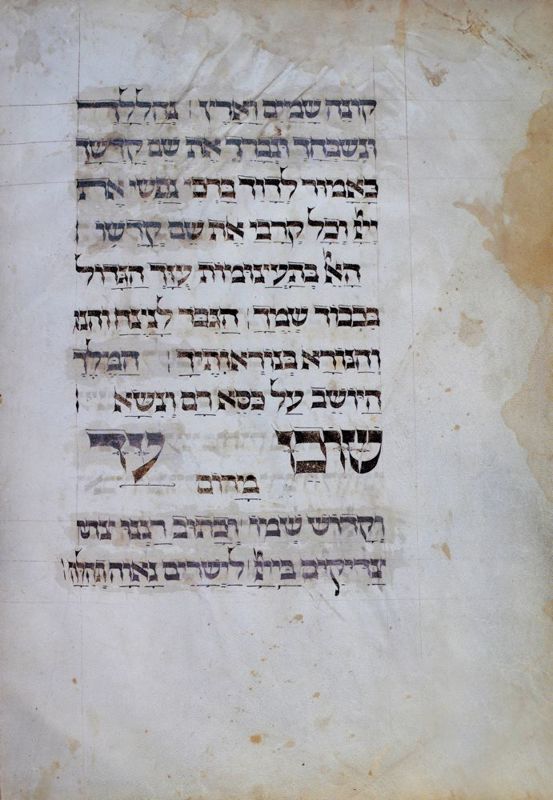 קונה שמים וארץ נהללך
ונשבחך ונברך את שם קדשך
כאמור לדוד ברכי נפשי את
ייי וכל קרבי את שם קדשו
האל בתעצומות עוז הגדול
בכבוד שמך הגבור לנצח והנו
והנורא בנוראותיך המלך
היושב על כסא רם ונשא
שוכן עד
מרום
וקדוש שמו וכתוב רננו צדי
צדיקים בייי לישרים נאוה תהלה